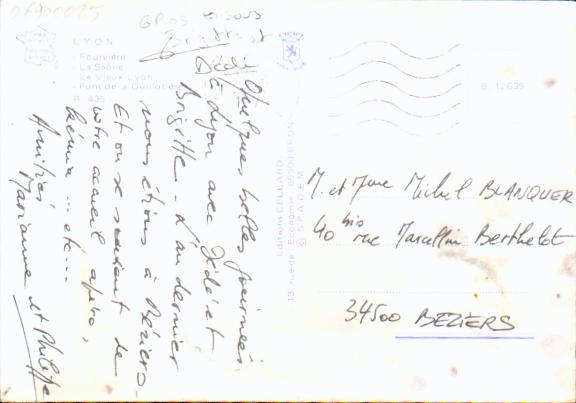 06900025
GROS BISOUS
Brigitte et
Dédé
LYON
- Fourvière
- La Saône
- Le Vieux Lyon
- Pont de la Guillotière
R. 435
Quelques belles journées
à Lyon avec Dédé et
Brigitte. L'an dernier
nous étions à Béziers.
Et on se souvient de
votre accueil apéro,
etc...
Amitiés
Marianne et Philippe
Editions CELLARD
13, rue de l'Economie 69500 BRON
© SPADEM
B. 12635
M. et Mme Michel BLANQUER
40 bis rue Marcellin Berthelot
34500 BEZIERS